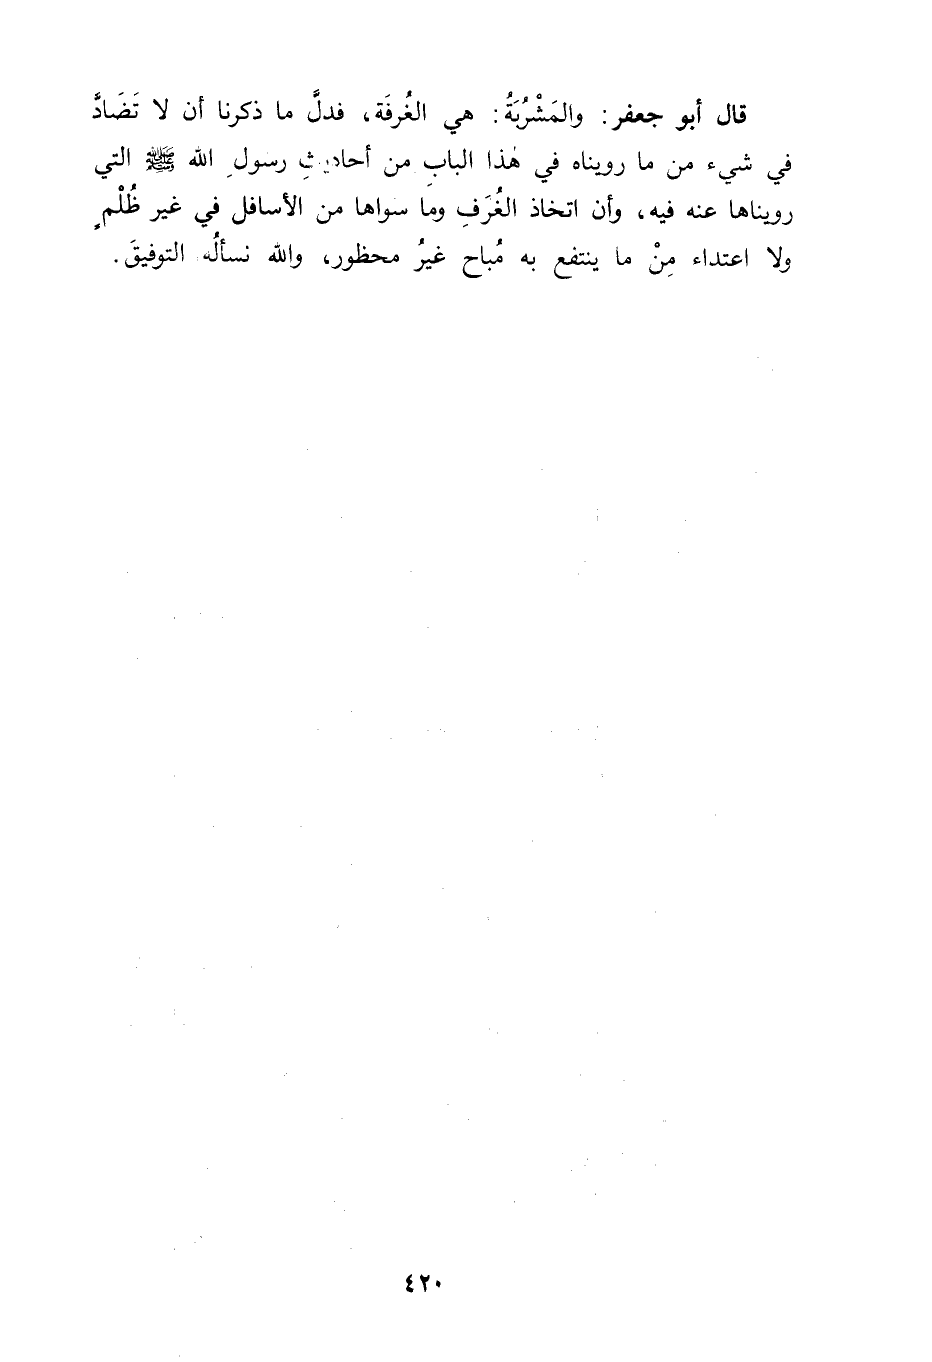 قال أبو جعفر: والمَشْرُبَةُ: هي الغُرفَة، فدلَّ ما ذكرنا أن لا تَضَادَّ
في شيء من ما رويناه في هٰذا البابِ من أحاديثِ رسولِ الله ﷺ التي
رويناها عنه فيه، وأن اتخاذ الغُرَفِ وما سواها من الأسافل في غير ظُلْمٍ
ولا اعتداء مِنْ ما ينتفع به مُباح غيرُ محظور، والله نسألُه التوفيقَ.
٤٢٠